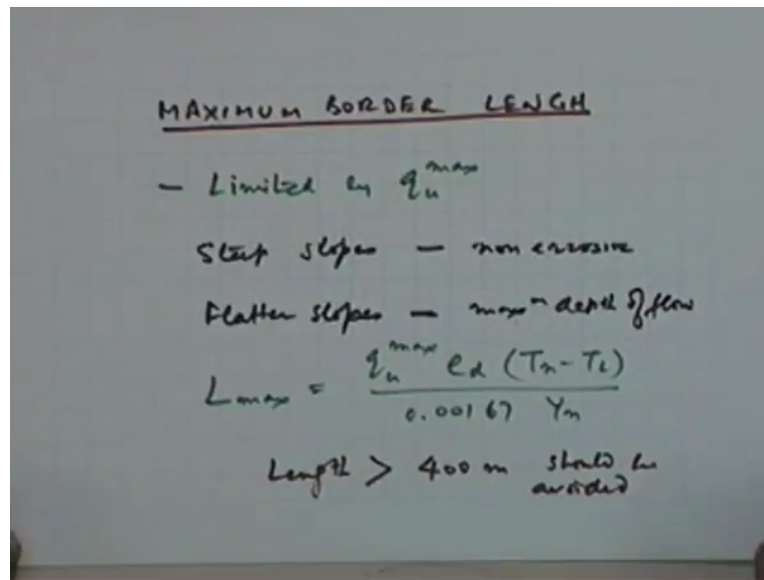 MAXIMUM BORDER LENGH
- Limited by q_u^max
Steep slopes - non errosive
Flatter slopes - max^m depth of flow
L_max = q_u^max e_d (T_n - T_L) / 0.00167 Y_n
Length > 400 m should be
avoided